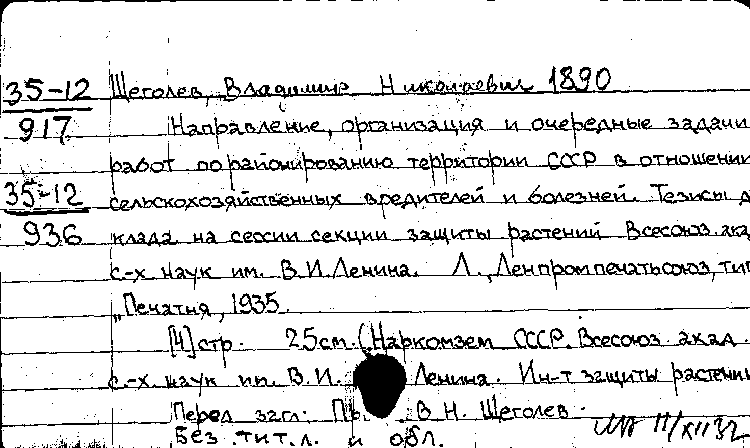 35-12 Щеголев, Владимир Николаевич 1890
917 Направление, организация и очередные задачи
работ по районированию территории СССР в отношении
35-12 сельскохозяйственных вредителей и болезней. Тезисы д
936 клада на сессии секции защиты растений Всесоюз. ака
с-х наук им. В.И. Ленина. Л., Ленпромпечатьсоюз, тип
„Печатня, 1935.
[4] стр. 25 см. (Наркомзем СССР. Всесоюз. акад.
с.-х. наук им. В.И. Ленина. Ин-т защиты растени
Перед загл: В.Н. Щеголев.
Без тит. л. и обл.